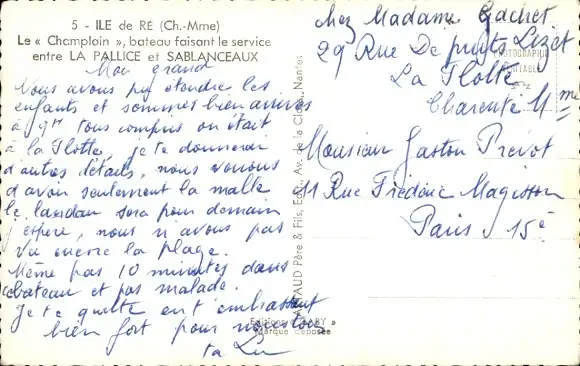 5 - ILE de RÉ (Ch.-Mme)
Le « Champlain », bateau faisant le service
entre LA PALLICE et SABLANCEAUX
Mon grand
Nous avons pu étendre les
enfants et sommes bien arrivés
à 9h tous compris on était
à la Flotte, je te donnerai
d'autres détails, nous venons
d'avoir seulement la malle
le landau sera pour demain
j'espère, nous n'avons pas
vu encore la plage.
Même pas 10 minutes dans
bateau et pas malade.
Je te quitte en t'embrassant
bien fort pour
ta
Chez Madame Gachet
29 Rue Du puits Lizet
La Flotte
Charente Mme
Monsieur Gaston Prevot
11 Rue Frédéric Magisson
Paris 15è
Père & Fils, Edit., Av. de la Nantes
PHOTOGRAPHIE
Marque déposée